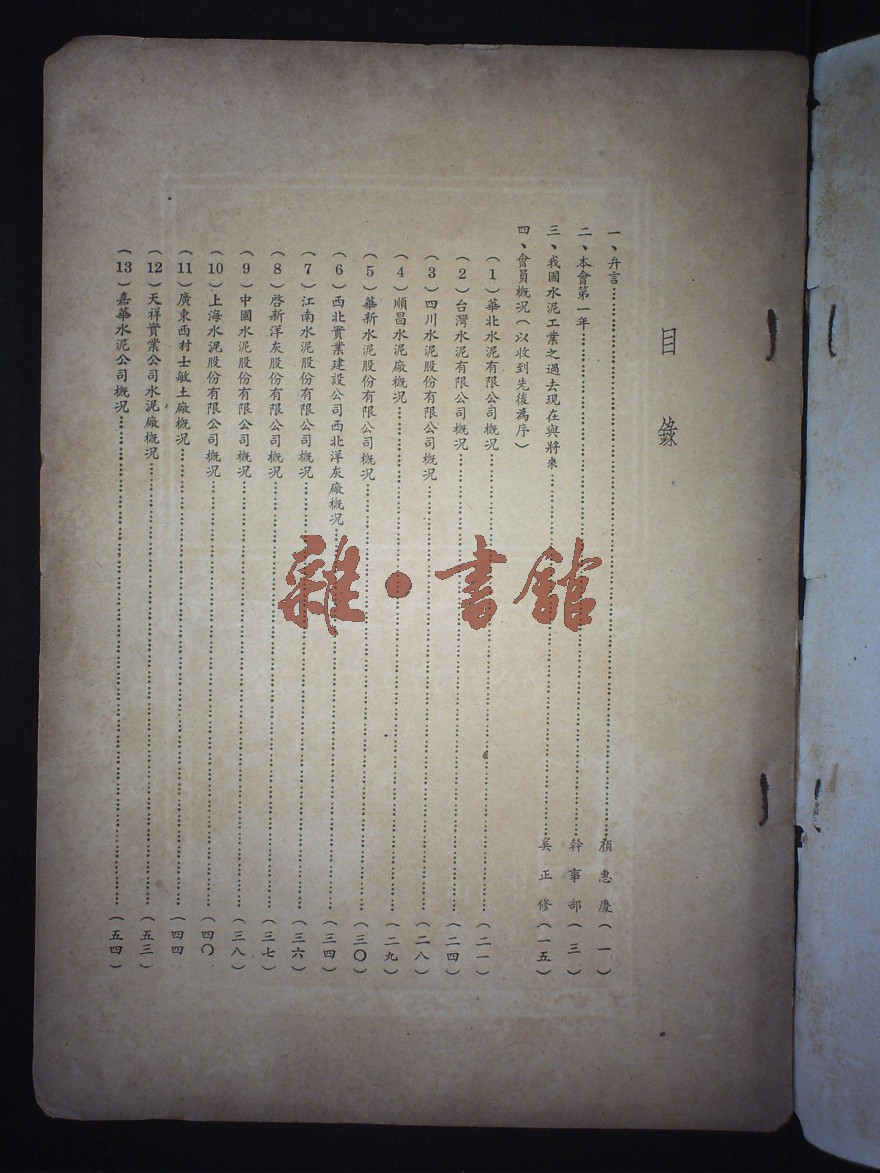 目錄
一、弁言……顏惠慶（一）
二、本會第一年……幹事部（三）
三、我國水泥工業之過去現在與將來……吳正修（一五）
四、會員概况（以收到先後為序）
（1）華北水泥有限公司概况……（二一）
（2）台灣水泥有限公司概况……（二四）
（3）四川水泥股份有限公司概况……（二八）
（4）順昌水泥廠概况……（二九）
（5）華新水泥股份有限公司概况……（三〇）
（6）西北實業建設公司西北洋灰廠概况……（三四）
（7）江南水泥股份有限公司概况……（三六）
（8）啓新洋灰股份有限公司概况……（三七）
（9）中國水泥股份有限公司概况……（三八）
（10）上海水泥股份有限公司概况……（四〇
（11）廣東西村士敏土廠概况……（四四
（12）天祥實業公司水泥廠概况……（五三）
（13）嘉華水泥公司概况……（五四）
雜•書館